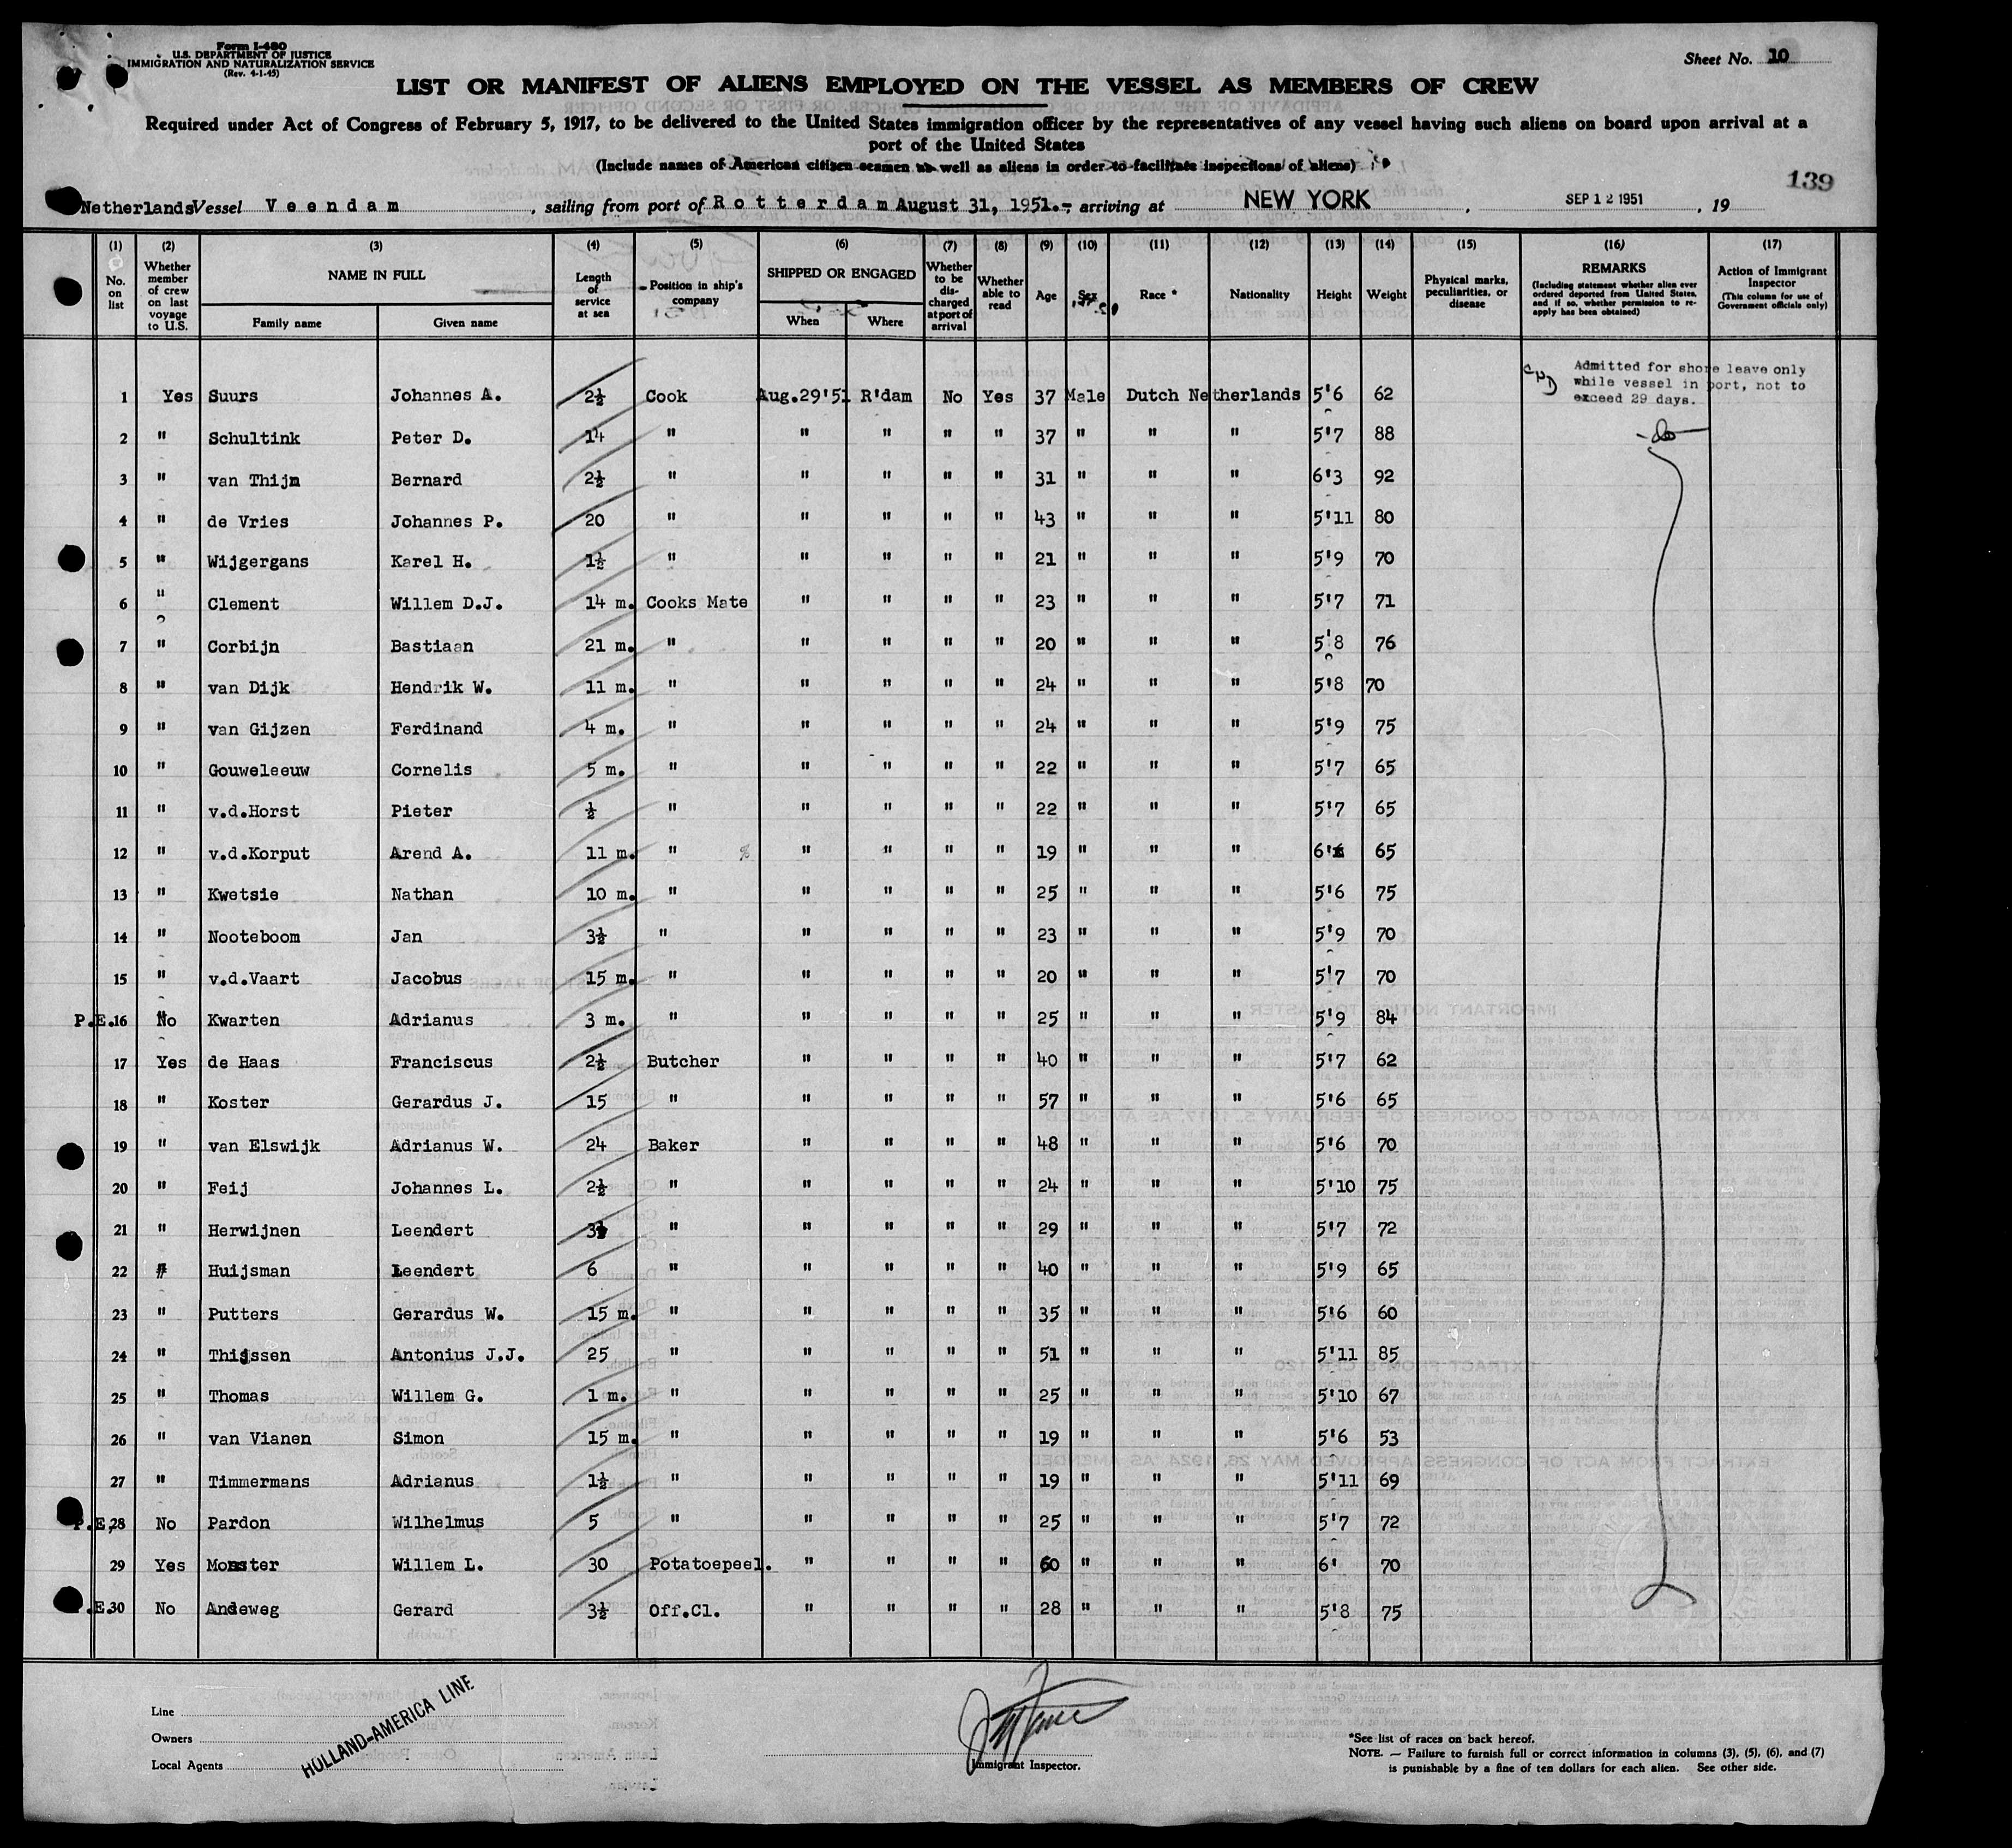 Form I-480
U.S. DEPARTMENT OF JUSTICE
IMMIGRATION AND NATURALIZATION SERVICE
(Rev. 4-1-45)
Sheet No. 10
LIST OR MANIFEST OF ALIENS EMPLOYED ON THE VESSEL AS MEMBERS OF CREW
Required under Act of Congress of February 5, 1917, to be delivered to the United States immigration officer by the representatives of any vessel having such aliens on board upon arrival at a
port of the United States
(Include names of American citizen seamen as well as aliens in order to facilitate inspections of aliens)
139
Netherlands Vessel Veendam, sailing from port of Rotterdam August 31, 1951.- arriving at NEW YORK, SEP 12 1951, 19
(1) (2) (3) (4) (5) (6) (7) (8) (9) (10) (11) (12) (13) (14) (15) (16) (17)
No. on list
Whether member of crew on last voyage to U.S.
NAME IN FULL
Family name Given name
Length of service at sea
Position in ship's company
SHIPPED OR ENGAGED
When Where
Whether to be discharged at port of arrival
Whether able to read
Age
Sex
Race *
Nationality
Height
Weight
Physical marks, peculiarities, or disease
REMARKS
(Including statement whether alien ever ordered deported from United States, and if so, whether permission to reapply has been obtained)
Action of Immigrant Inspector
(This column for use of Government officials only)
Admitted for shore leave only
while vessel in port, not to
exceed 29 days.
1 Yes Suurs Johannes A. 2½ Cook Aug.29'51 R'dam No Yes 37 Male Dutch Netherlands 5'6 62
2 " Schultink Peter D. 14 " " " " " 37 " " " 5'7 88 - do -
3 " van Thijn Bernard 2½ " " " " " 31 " " " 6'3 92
4 " de Vries Johannes P. 20 " " " " " 43 " " " 5'11 80
5 " Wijgergans Karel H. 1½ " " " " " 21 " " " 5'9 70
6 " Clement Willem D.J. 14 m. Cooks Mate " " " " 23 " " " 5'7 71
7 " Corbijn Bastiaan 21 m. " " " " " 20 " " " 5'8 76
8 " van Dijk Hendrik W. 11 m. " " " " " 24 " " " 5'8 70
9 " van Gijzen Ferdinand 4 m. " " " " " 24 " " " 5'9 75
10 " Gouweleeuw Cornelis 5 m. " " " " " 22 " " " 5'7 65
11 " v.d.Horst Pieter ½ " " " " " 22 " " " 5'7 65
12 " v.d.Korput Arend A. 11 m. " " " " " 19 " " " 6' 65
13 " Kwetsie Nathan 10 m. " " " " " 25 " " " 5'6 75
14 " Nooteboom Jan 3½ " " " " " 23 " " " 5'9 70
15 " v.d.Vaart Jacobus 15 m. " " " " " 20 " " " 5'7 70
P.E.16 No Kwarten Adrianus 3 m. " " " " " 25 " " " 5'9 84
17 Yes de Haas Franciscus 2½ Butcher " " " " 40 " " " 5'7 62
18 " Koster Gerardus J. 15 " " " " " 57 " " " 5'6 65
19 " van Elswijk Adrianus W. 24 Baker " " " " 48 " " " 5'6 70
20 " Feij Johannes L. 2½ " " " " " 24 " " " 5'10 75
21 " Herwijnen Leendert 3½ " " " " " 29 " " " 5'7 72
22 " Huijsman Leendert 6 " " " " " 40 " " " 5'9 65
23 " Putters Gerardus W. 15 m. " " " " " 35 " " " 5'6 60
24 " Thijssen Antonius J.J. 25 " " " " " 51 " " " 5'11 85
25 " Thomas Willem G. 1 m. " " " " " 25 " " " 5'10 67
26 " van Vianen Simon 15 m. " " " " " 19 " " " 5'6 53
27 " Timmermans Adrianus 1½ " " " " " 19 " " " 5'11 69
P.E.28 No Pardon Wilhelmus 5 " " " " " 25 " " " 5'7 72
29 Yes Monster Willem L. 30 Potatoepeel. " " " " 60 " " " 6' 70
P.E.30 No Andeweg Gerard 3½ Off.Cl. " " " " 28 " " " 5'8 75
Line
Owners
Local Agents
HOLLAND-AMERICA LINE
Immigrant Inspector.
*See list of races on back hereof.
NOTE. — Failure to furnish full or correct information in columns (3), (5), (6), and (7)
is punishable by a fine of ten dollars for each alien. See other side.